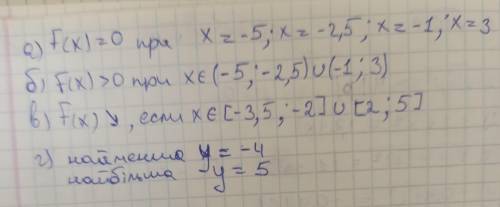 а) f(x)=0 при x=-5; x=-2,5; x=-1; x=3
б) f(x)>0 при x∈(-5; -2,5)∪(-1; 3)
в) f(x)↘, если x∈[-3,5; -2]∪[2; 5]
г) найменша y=-4
найбільша y=5